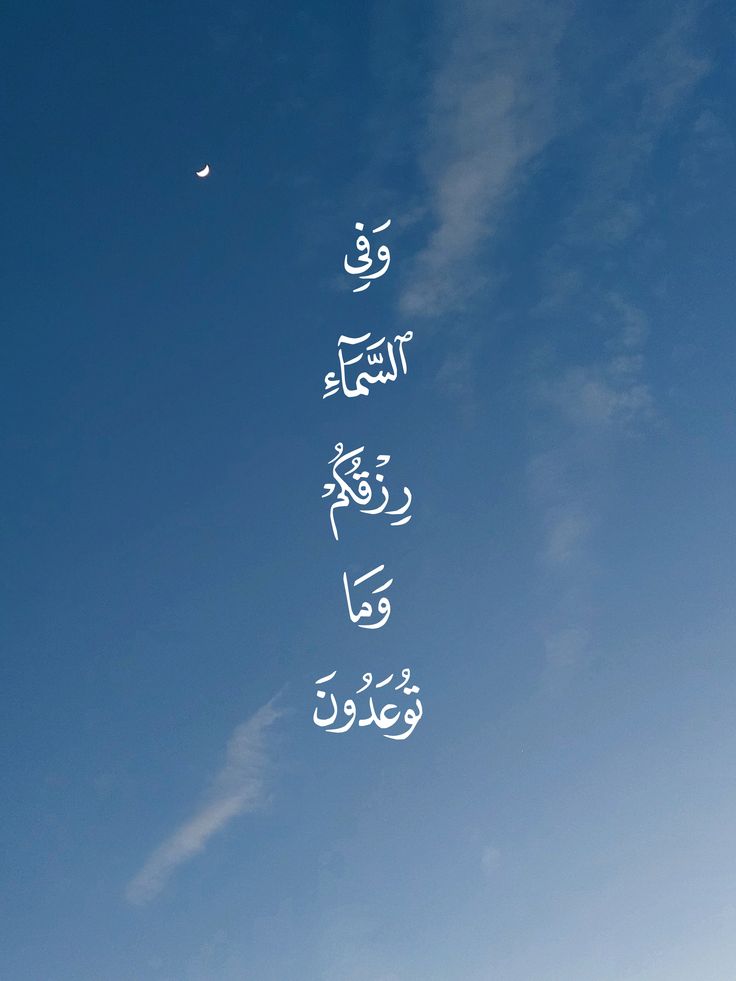 وَفِي
ٱلسَّمَآءِ
رِزْقُكُمْ
وَمَا
تُوعَدُونَ